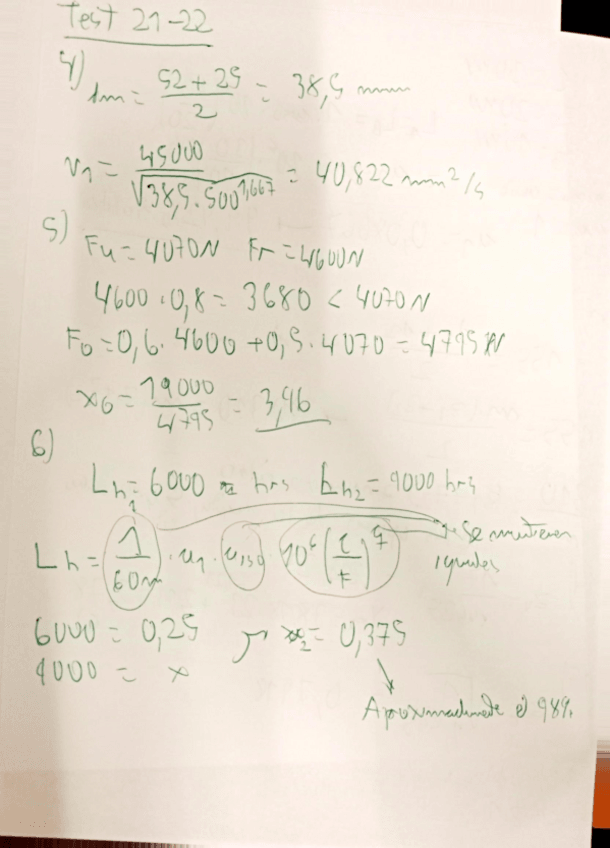 Test 21-22
4)
dm = 52+25/2 = 38,5 mm
ν1 = 45000/√38,5·500^1,667 = 40,822 mm²/s
5)
Fa = 4070N Fr = 4600N
4600·0,8 = 3680 < 4070N
Fo = 0,6·4600+0,5·4070 = 4795 N
x0 = 19000/4795 = 3,96
6)
Lh1 = 6000 hrs Lh2 = 9000 hrs
Lh = (1/60n)·a1·aiso·10^6(C/F)^q → Se mantienen
iguales
6000 = 0,25 x2 = 0,375
9000 = x
Aproximadamente el 98%